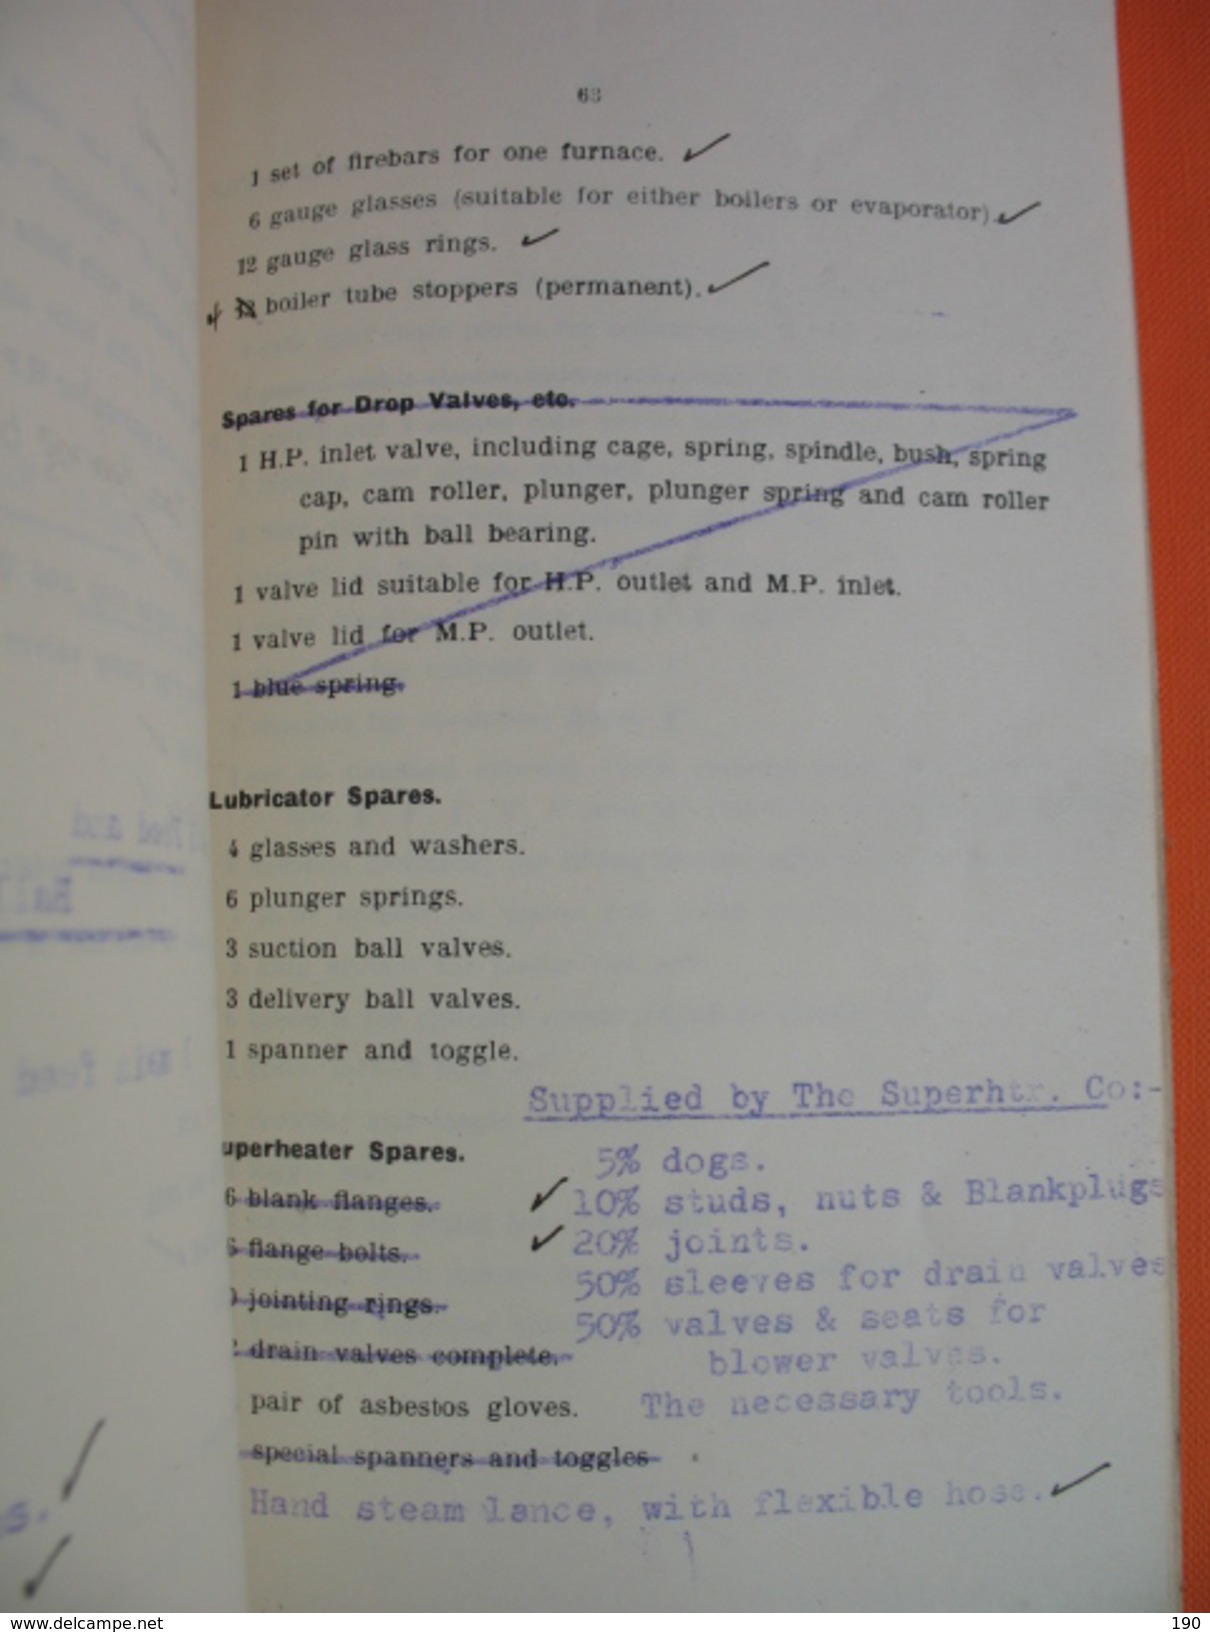 63
1 set of firebars for one furnace.
6 gauge glasses (suitable for either boilers or evaporator).
12 gauge glass rings.
boiler tube stoppers (permanent).
Spares for Drop Valves, etc.
1 H.P. inlet valve, including cage, spring, spindle, bush, spring
cap, cam roller, plunger, plunger spring and cam roller
pin with ball bearing.
1 valve lid suitable for H.P. outlet and M.P. inlet.
1 valve lid for M.P. outlet.
1 blue spring.
Lubricator Spares.
4 glasses and washers.
6 plunger springs.
3 suction ball valves.
3 delivery ball valves.
1 spanner and toggle.
Supplied by The Superhtr. Co:-
uperheater Spares.
5% dogs.
6 blank flanges.
10% studs, nuts & Blankplugs
6 flange bolts.
20% joints.
jointing rings.
50% sleeves for drain valves
50% valves & seats for
drain valves complete.
blower valves.
pair of asbestos gloves.
The necessary tools.
special spanners and toggles
Hand steam lance, with flexible hose.
www.delcampe.net
190